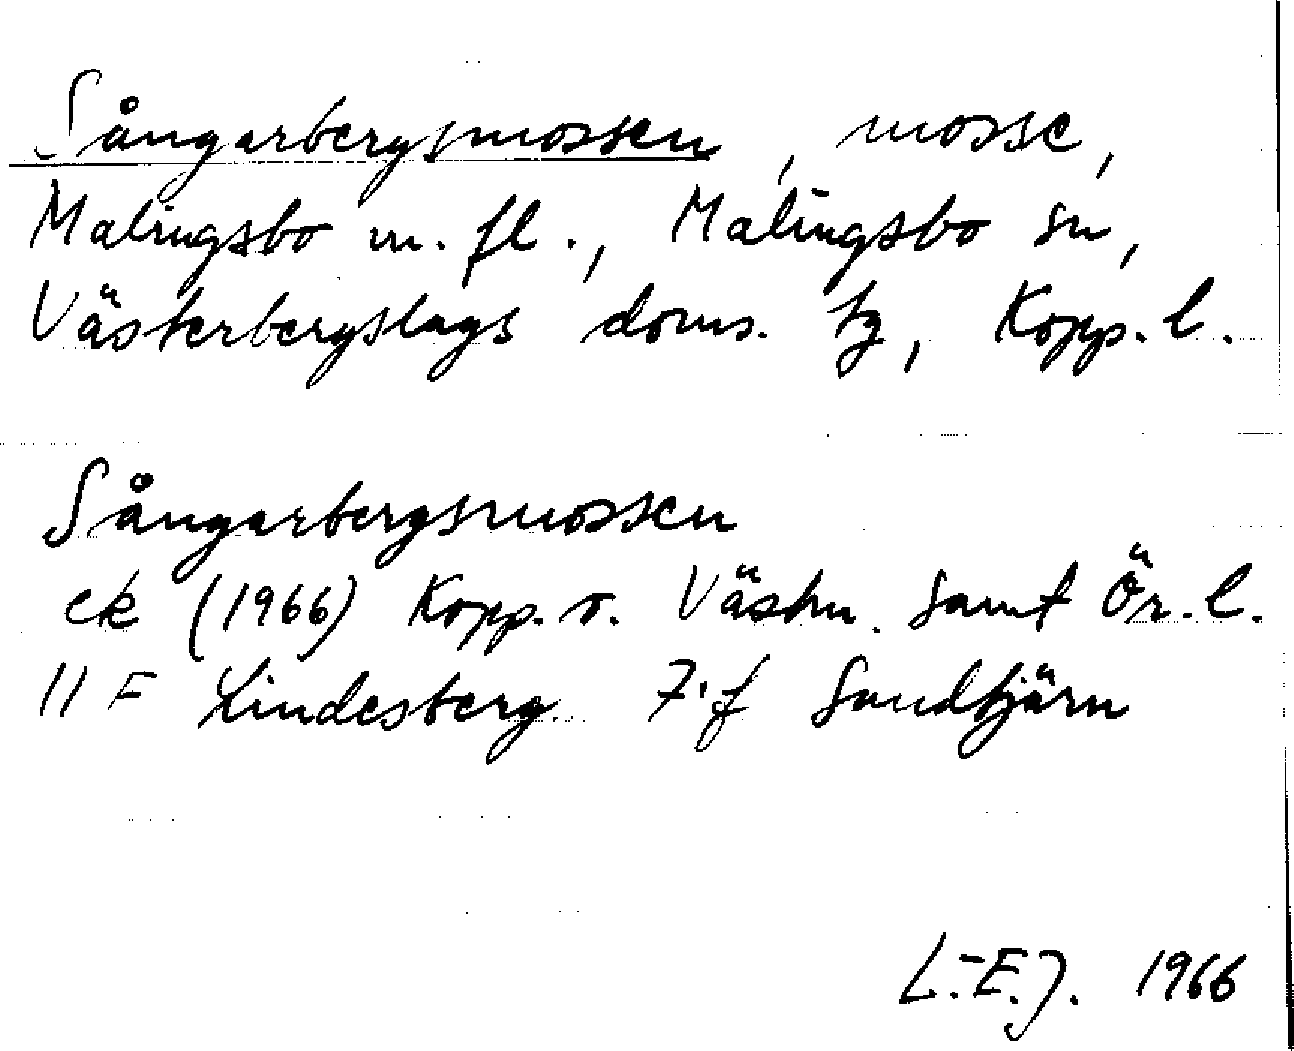 Sångarbergsmossen, mosse,
Malingsbo m. fl., Malingsbo sn,
Västerbergslags doms. tg, Kopp. l.
Sångarbergsmossen
ek (1966) Kopp. o. Västm. samt Ör. l.
11 F Lindesberg 7 f Sandtjärn
L.-E.J. 1966